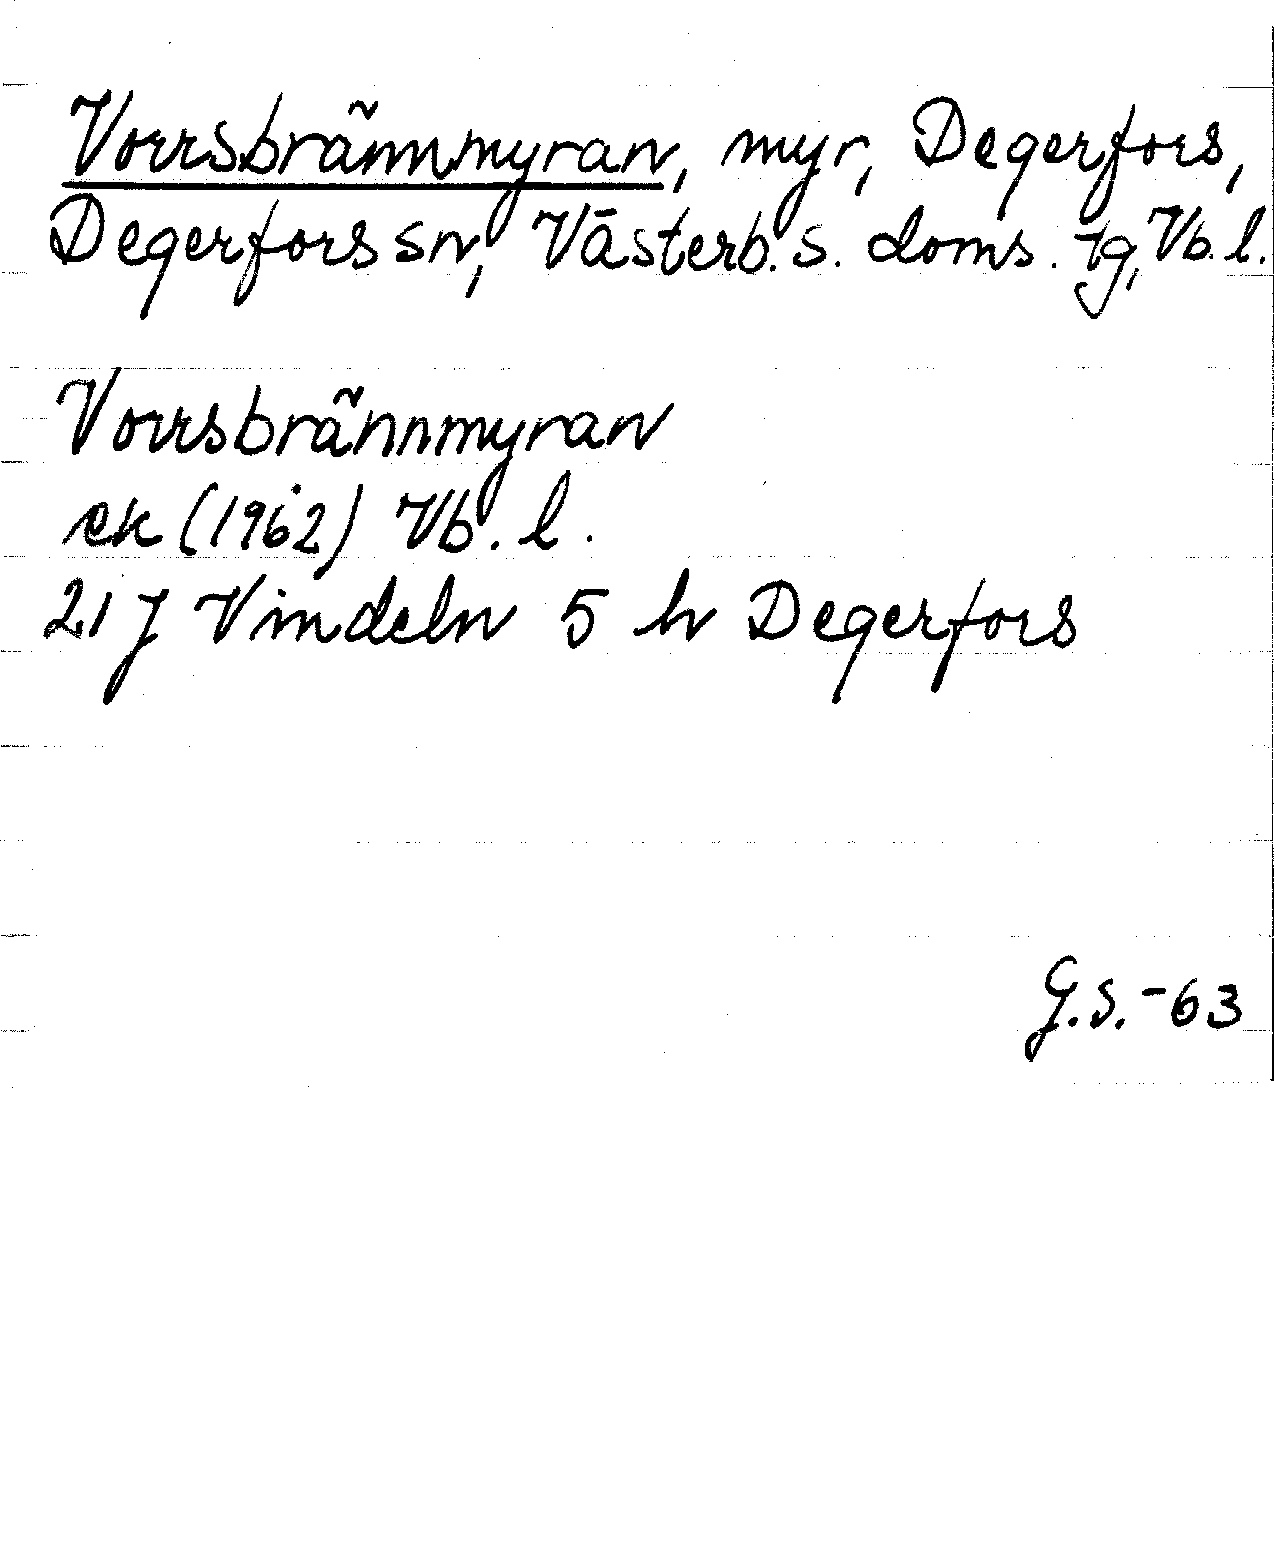 Vorrsbrännmyran, myr, Degerfors,
Degerfors sn, Västerb. s. doms. tg, Vb. l.
Vorrsbrännmyran
ek (1962) Vb. l.
21 J Vindeln 5 h Degerfors
G.S.-63